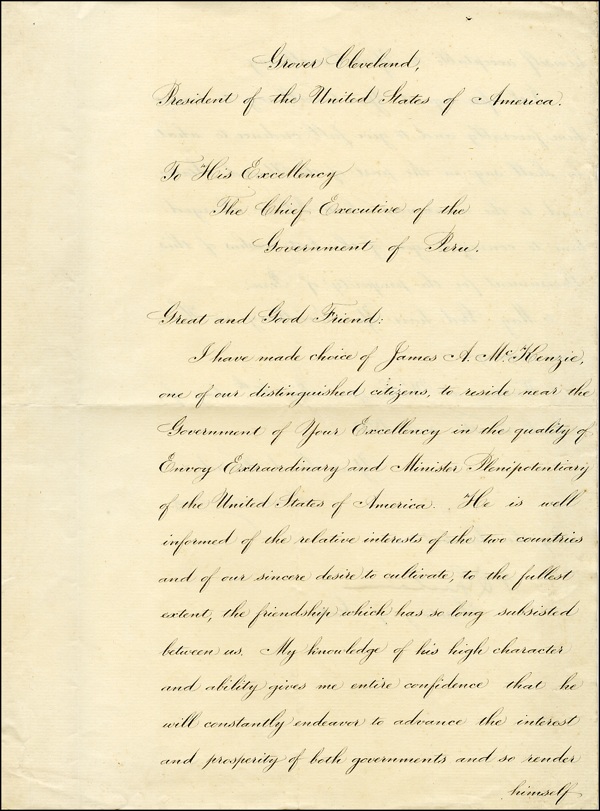 Grover Cleveland,
President of the United States of America.
To His Excellency
The Chief Executive of the
Government of Peru.
Great and Good Friend:
I have made choice of James A. McKenzie,
one of our distinguished citizens, to reside near the
Government of Your Excellency in the quality of
Envoy Extraordinary and Minister Plenipotentiary
of the United States of America. He is well
informed of the relative interests of the two countries
and of our sincere desire to cultivate, to the fullest
extent, the friendship which has so long subsisted
between us. My knowledge of his high character
and ability gives me entire confidence that he
will constantly endeavor to advance the interest
and prosperity of both governments and so render
himself